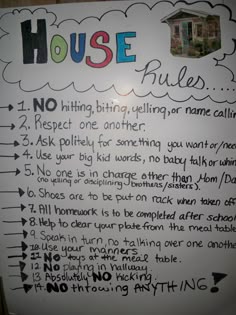 HOUSE
Rules.....
1. NO hitting, biting, yelling, or name callin
2. Respect one another.
3. Ask politely for something you want or need
4. Use your big kid words, no baby talk or whin
5. No one is in charge other than Mom/Da
(no yelling or disciplining brothers/sisters).
6. Shoes are to be put on rack when taken off
7. All homework is to be completed after school
8. Help to clear your plate from the meal table
9. Speak in turn, no talking over one another
10. Use your manners.
11. NO toys at the meal table.
12. NO playing in hallway.
13 Absolutely NO kicking.
14. NO throwing ANYTHING!